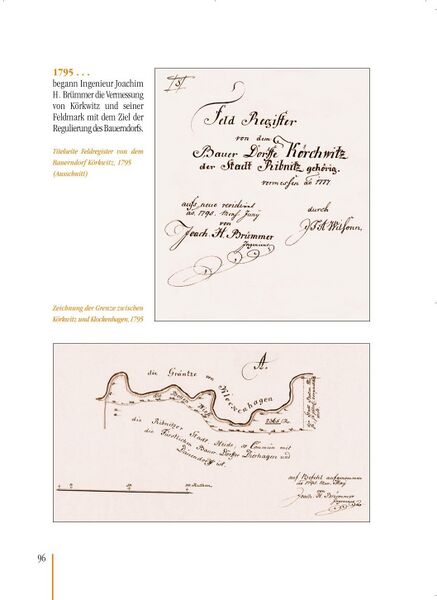 1795 . . .
begann Ingenieur Joachim
H. Brümmer die Vermessung
von Körkwitz und seiner
Feldmark mit dem Ziel der
Regulierung des Bauerndorfs.
Titelseite Feldregister von dem
Bauerndorf Körkwitz, 1795
(Ausschnitt)
Feld Register
von dem
Bauer Dorffe Körchwitz
der Stadt Ribnitz gehörig.
vermessen ao 1777.
aufs neue revidirt
durch
von
Joach. H. Brümmer
J. A. Wilsonn.
Ingenieur
Zeichnung der Grenze zwischen
Körkwitz und Klockenhagen, 1795
A.
die Gräntze von
Klockenhagen
die Ribnitzer Stadt Heide, so Commun mit
die Fürstlichen Bauer Dörffer Dierhagen und
Dänendorff ist.
auf Befehl aufgenommen
Joach. H. Brümmer
Ingenieur
96